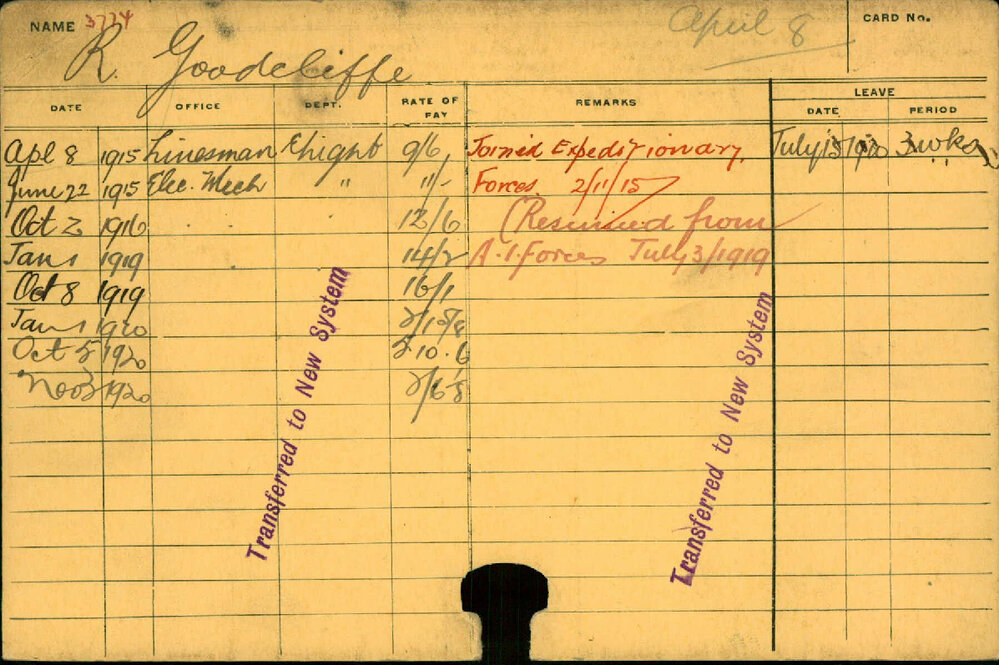 NAME 3774 April 8 CARD No.
R. Goodcliffe
DATE OFFICE DEPT. RATE OF PAY REMARKS LEAVE
DATE PERIOD
Apl 8 1915 Linesman Elight 9/6 Joined Expeditionary July 15 1920 3 wks
June 22 1915 Elec. Mech " 11/- Forces 2/11/15
Oct 2 1916 12/6 (Resumed from
Jan 1 1919 14/2 A.I. Forces July 3/1919
Oct 8 1919 16/1
Jan 1 1920
Oct 5 1920 10.6
Nov 3 1920
Transferred to New System
Transferred to New System